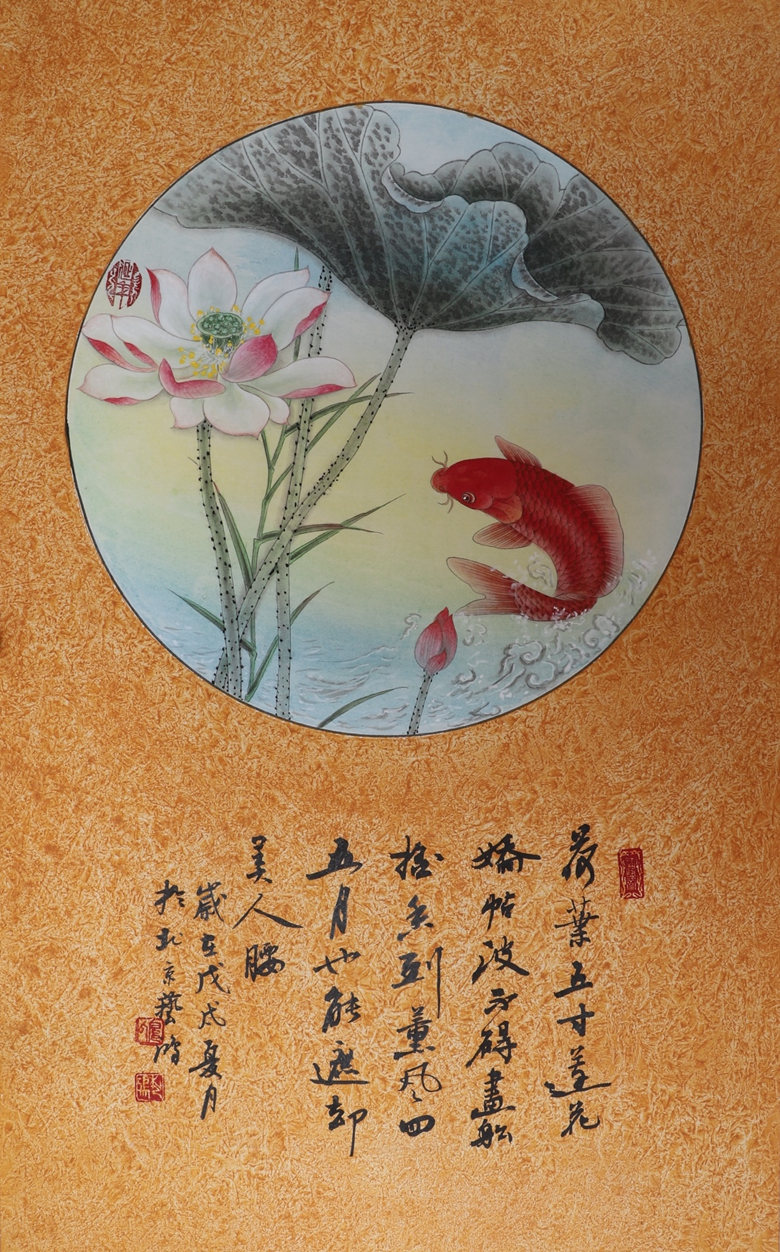 荷葉五寸蓮花
嬌帖波不碍畫船
摇到薰風四
五月也能遮却
美人腰
歲在戊戌夏月
於北京藝